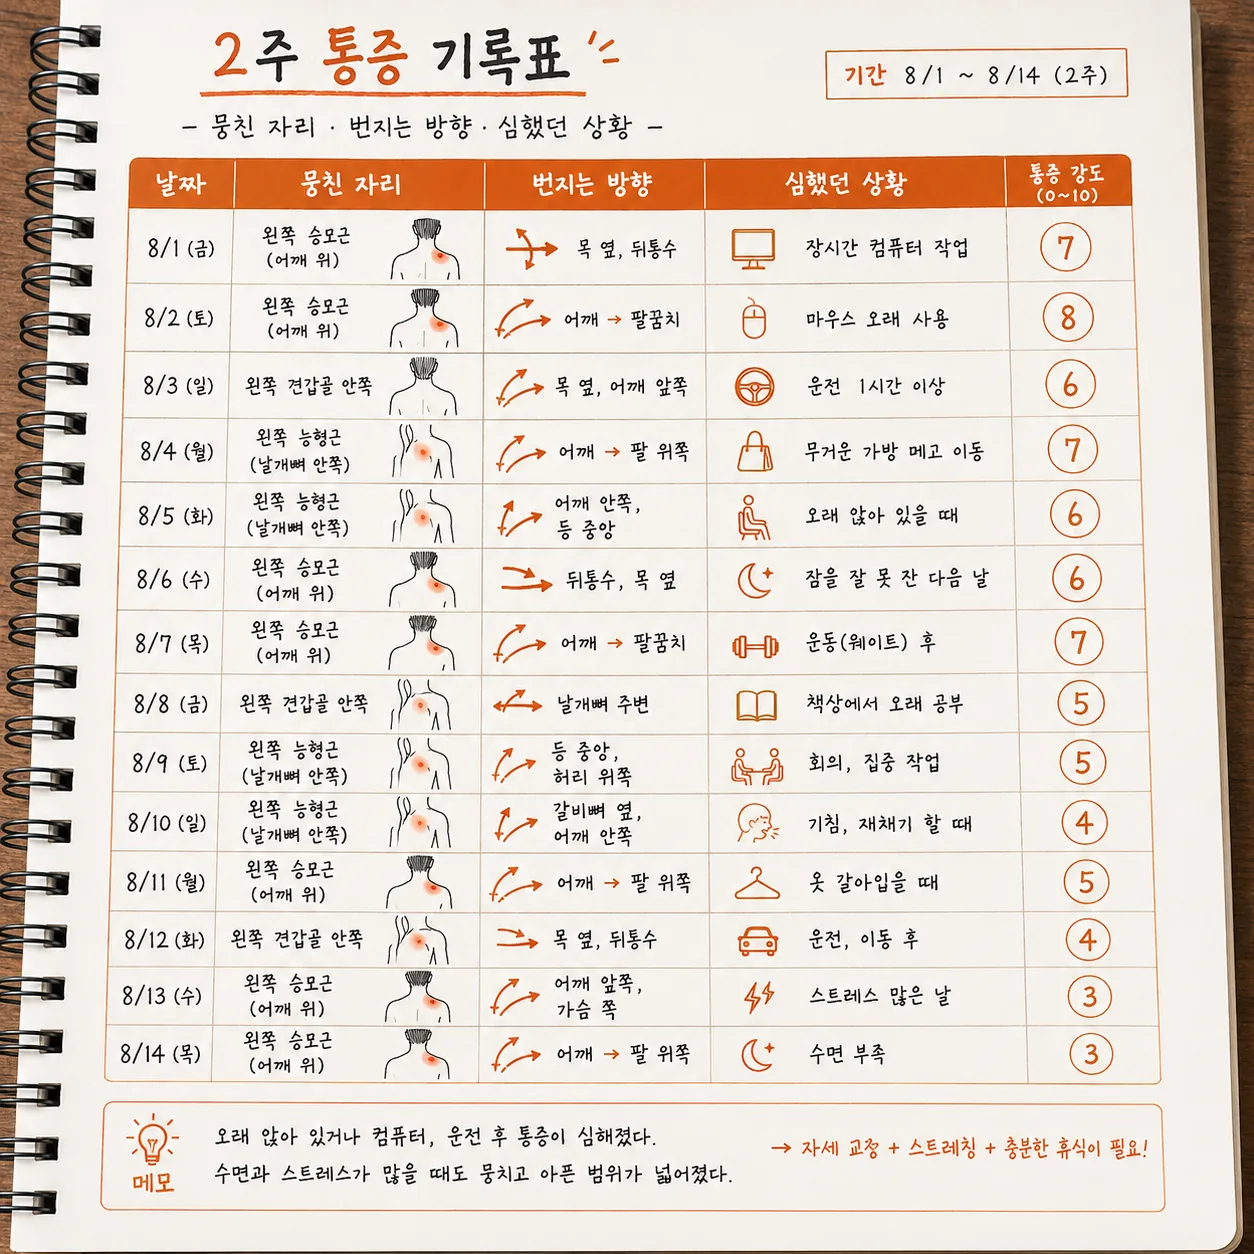 2주 통증 기록표
기간 8/1 ~ 8/14 (2주)
- 뭉친 자리 · 번지는 방향 · 심했던 상황 -
날짜 뭉친 자리 번지는 방향 심했던 상황 통증 강도
(0~10)
8/1 (금) 왼쪽 승모근
(어깨 위) 목 옆, 뒤통수 장시간 컴퓨터 작업 7
8/2 (토) 왼쪽 승모근
(어깨 위) 어깨 → 팔꿈치 마우스 오래 사용 8
8/3 (일) 왼쪽 견갑골 안쪽 목 옆, 어깨 앞쪽 운전 1시간 이상 6
8/4 (월) 왼쪽 능형근
(날개뼈 안쪽) 어깨 → 팔 위쪽 무거운 가방 메고 이동 7
8/5 (화) 왼쪽 능형근 어깨 안쪽,
(날개뼈 안쪽) 등 중앙 오래 앉아 있을 때 6
8/6 (수) 왼쪽 승모근
(어깨 위) 뒤통수, 목 옆 잠을 잘 못 잔 다음 날 6
8/7 (목) 왼쪽 승모근
(어깨 위) 어깨 → 팔꿈치 운동(웨이트) 후 7
8/8 (금) 왼쪽 견갑골 안쪽 날개뼈 주변 책상에서 오래 공부 5
8/9 (토) 왼쪽 능형근 등 중앙,
(날개뼈 안쪽) 허리 위쪽 회의, 집중 작업 5
8/10 (일) 왼쪽 능형근 갈비뼈 옆,
(날개뼈 안쪽) 어깨 안쪽 기침, 재채기 할 때 4
8/11 (월) 왼쪽 승모근
(어깨 위) 어깨 → 팔 위쪽 옷 갈아입을 때 5
8/12 (화) 왼쪽 견갑골 안쪽 목 옆, 뒤통수 운전, 이동 후 4
8/13 (수) 왼쪽 승모근 어깨 앞쪽,
(어깨 위) 가슴 쪽 스트레스 많은 날 3
8/14 (목) 왼쪽 승모근
(어깨 위) 어깨 → 팔 위쪽 수면 부족 3
메모
오래 앉아 있거나 컴퓨터, 운전 후 통증이 심해졌다.
수면과 스트레스가 많을 때도 뭉치고 아픈 범위가 넓어졌다.
→ 자세 교정 + 스트레칭 + 충분한 휴식이 필요!